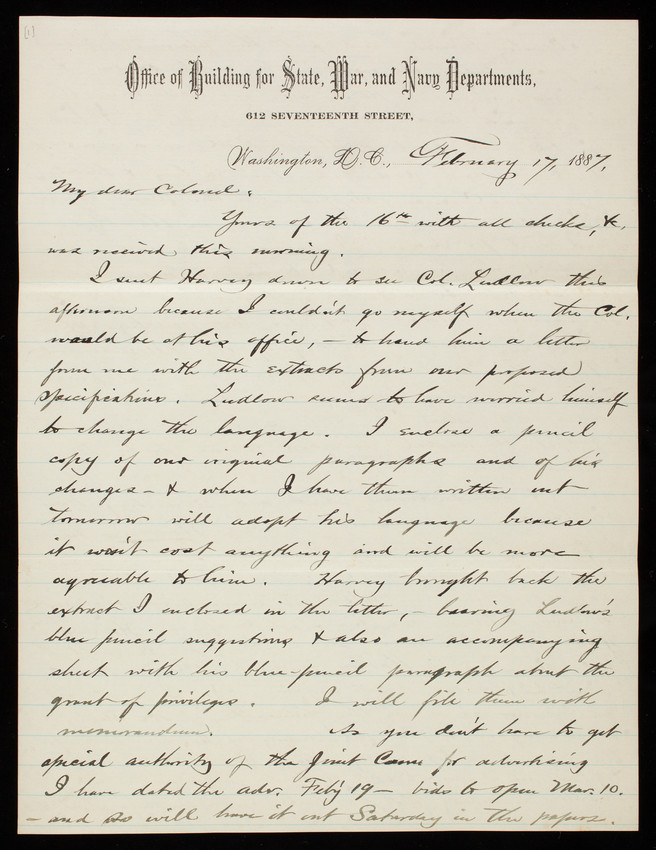 [1]
Office of Building for State, War, and Navy Departments,
612 SEVENTEENTH STREET,
Washington, D.C., February 17, 1887.
My dear Colonel:
Yours of the 16th with all checks, &c,
was received this morning.
I sent Harvey down to see Col. Ludlow this
afternoon because I couldn't go myself when the Col.
would be at his office, – to hand him a letter
from me with the extracts from our proposed
specifications. Ludlow seems to have worried himself
to change the language. I enclose a pencil
copy of our original paragraphs and of his
changes – & when I have them written out
tomorrow will adopt his language because
it won't cost anything and will be more
agreeable to him. Harvey brought back the
extract I enclosed in the letter, – bearing Ludlow's
blue pencil suggestions & also an accompanying
sheet with his blue-pencil paragraph about the
grant of privileges. I will file them with
memorandum. As you don't have to get
special authority of the Joint Comn for advertising
I have dated the adv. Feb'y 19 – bids to open Mar. 10.
– and so will have it out Saturday in the papers.